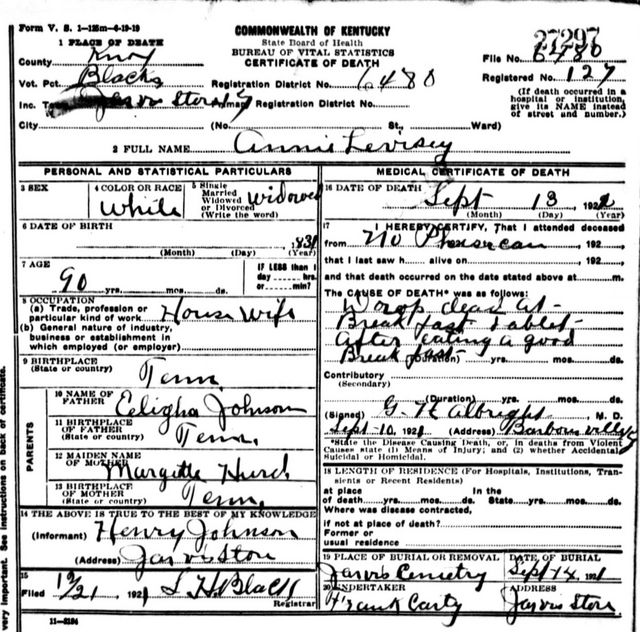 Form V. S. 1-125m-4-19-19
COMMONWEALTH OF KENTUCKY
State Board of Health
BUREAU OF VITAL STATISTICS
CERTIFICATE OF DEATH
27297
File No. 6480
Registered No. 127
(If death occurred in a hospital or institution, give its NAME instead of street and number.)
1 PLACE OF DEATH
County Knox
Vot. Pct. Blacks Registration District No. 6480
Inc. Jarvis Store Primary Registration District No.
City (No. St., Ward)
2 FULL NAME Annie Levisey
PERSONAL AND STATISTICAL PARTICULARS
3 SEX
4 COLOR OR RACE
White
5 Single
Married
Widowed
or Divorced
(Write the word)
Widowed
6 DATE OF BIRTH
1831
(Month) (Day) (Year)
7 AGE
90 yrs. mos. ds.
IF LESS than 1
day hrs.
or min.?
8 OCCUPATION
(a) Trade, profession or
particular kind of work House Wife
(b) General nature of industry,
business or establishment in
which employed (or employer)
9 BIRTHPLACE
(State or country)
Tenn.
PARENTS
10 NAME OF
FATHER
Eeligha Johnson
11 BIRTHPLACE
OF FATHER
(State or country)
Tenn.
12 MAIDEN NAME
OF MOTHER
Margette Hurd
13 BIRTHPLACE
OF MOTHER
(State or country)
Tenn.
14 THE ABOVE IS TRUE TO THE BEST OF MY KNOWLEDGE
(Informant) Henry Johnson
(Address) Jarvis Store
15
Filed 12/21 1921 S H Black
Registrar
11-3184
MEDICAL CERTIFICATE OF DEATH
16 DATE OF DEATH
Sept 13 1921
(Month) (Day) (Year)
17 I HEREBY CERTIFY, That I attended deceased
from No Phesican, 192
that I last saw h alive on 192
and that death occurred on the date stated above at m.
The CAUSE OF DEATH* was as follows:
Drop dead at
Break fast table
After eating a good
Break fast
(Duration) yrs. mos. ds.
Contributory
(Secondary)
(Duration) yrs. mos. ds.
(Signed) G H Albright, M. D.
Sept-10 1921 (Address) Barbourville Ky
*State the Disease Causing Death, or, in deaths from Violent
Causes state (1) Means of Injury; and (2) whether Accidental
Suicidal or Homicidal.
18 LENGTH OF RESIDENCE (For Hospitals, Institutions, Transients or Recent Residents)
at place In the
of death yrs. mos. ds. State yrs. mos. ds.
Where was disease contracted,
if not at place of death?
Former or
usual residence
19 PLACE OF BURIAL OR REMOVAL
Jarvis Cemetry
DATE OF BURIAL
Sept 14 1921
20 UNDERTAKER
Frank Carty
ADDRESS
Jarvis Store
very important. See instructions on back of certificate.